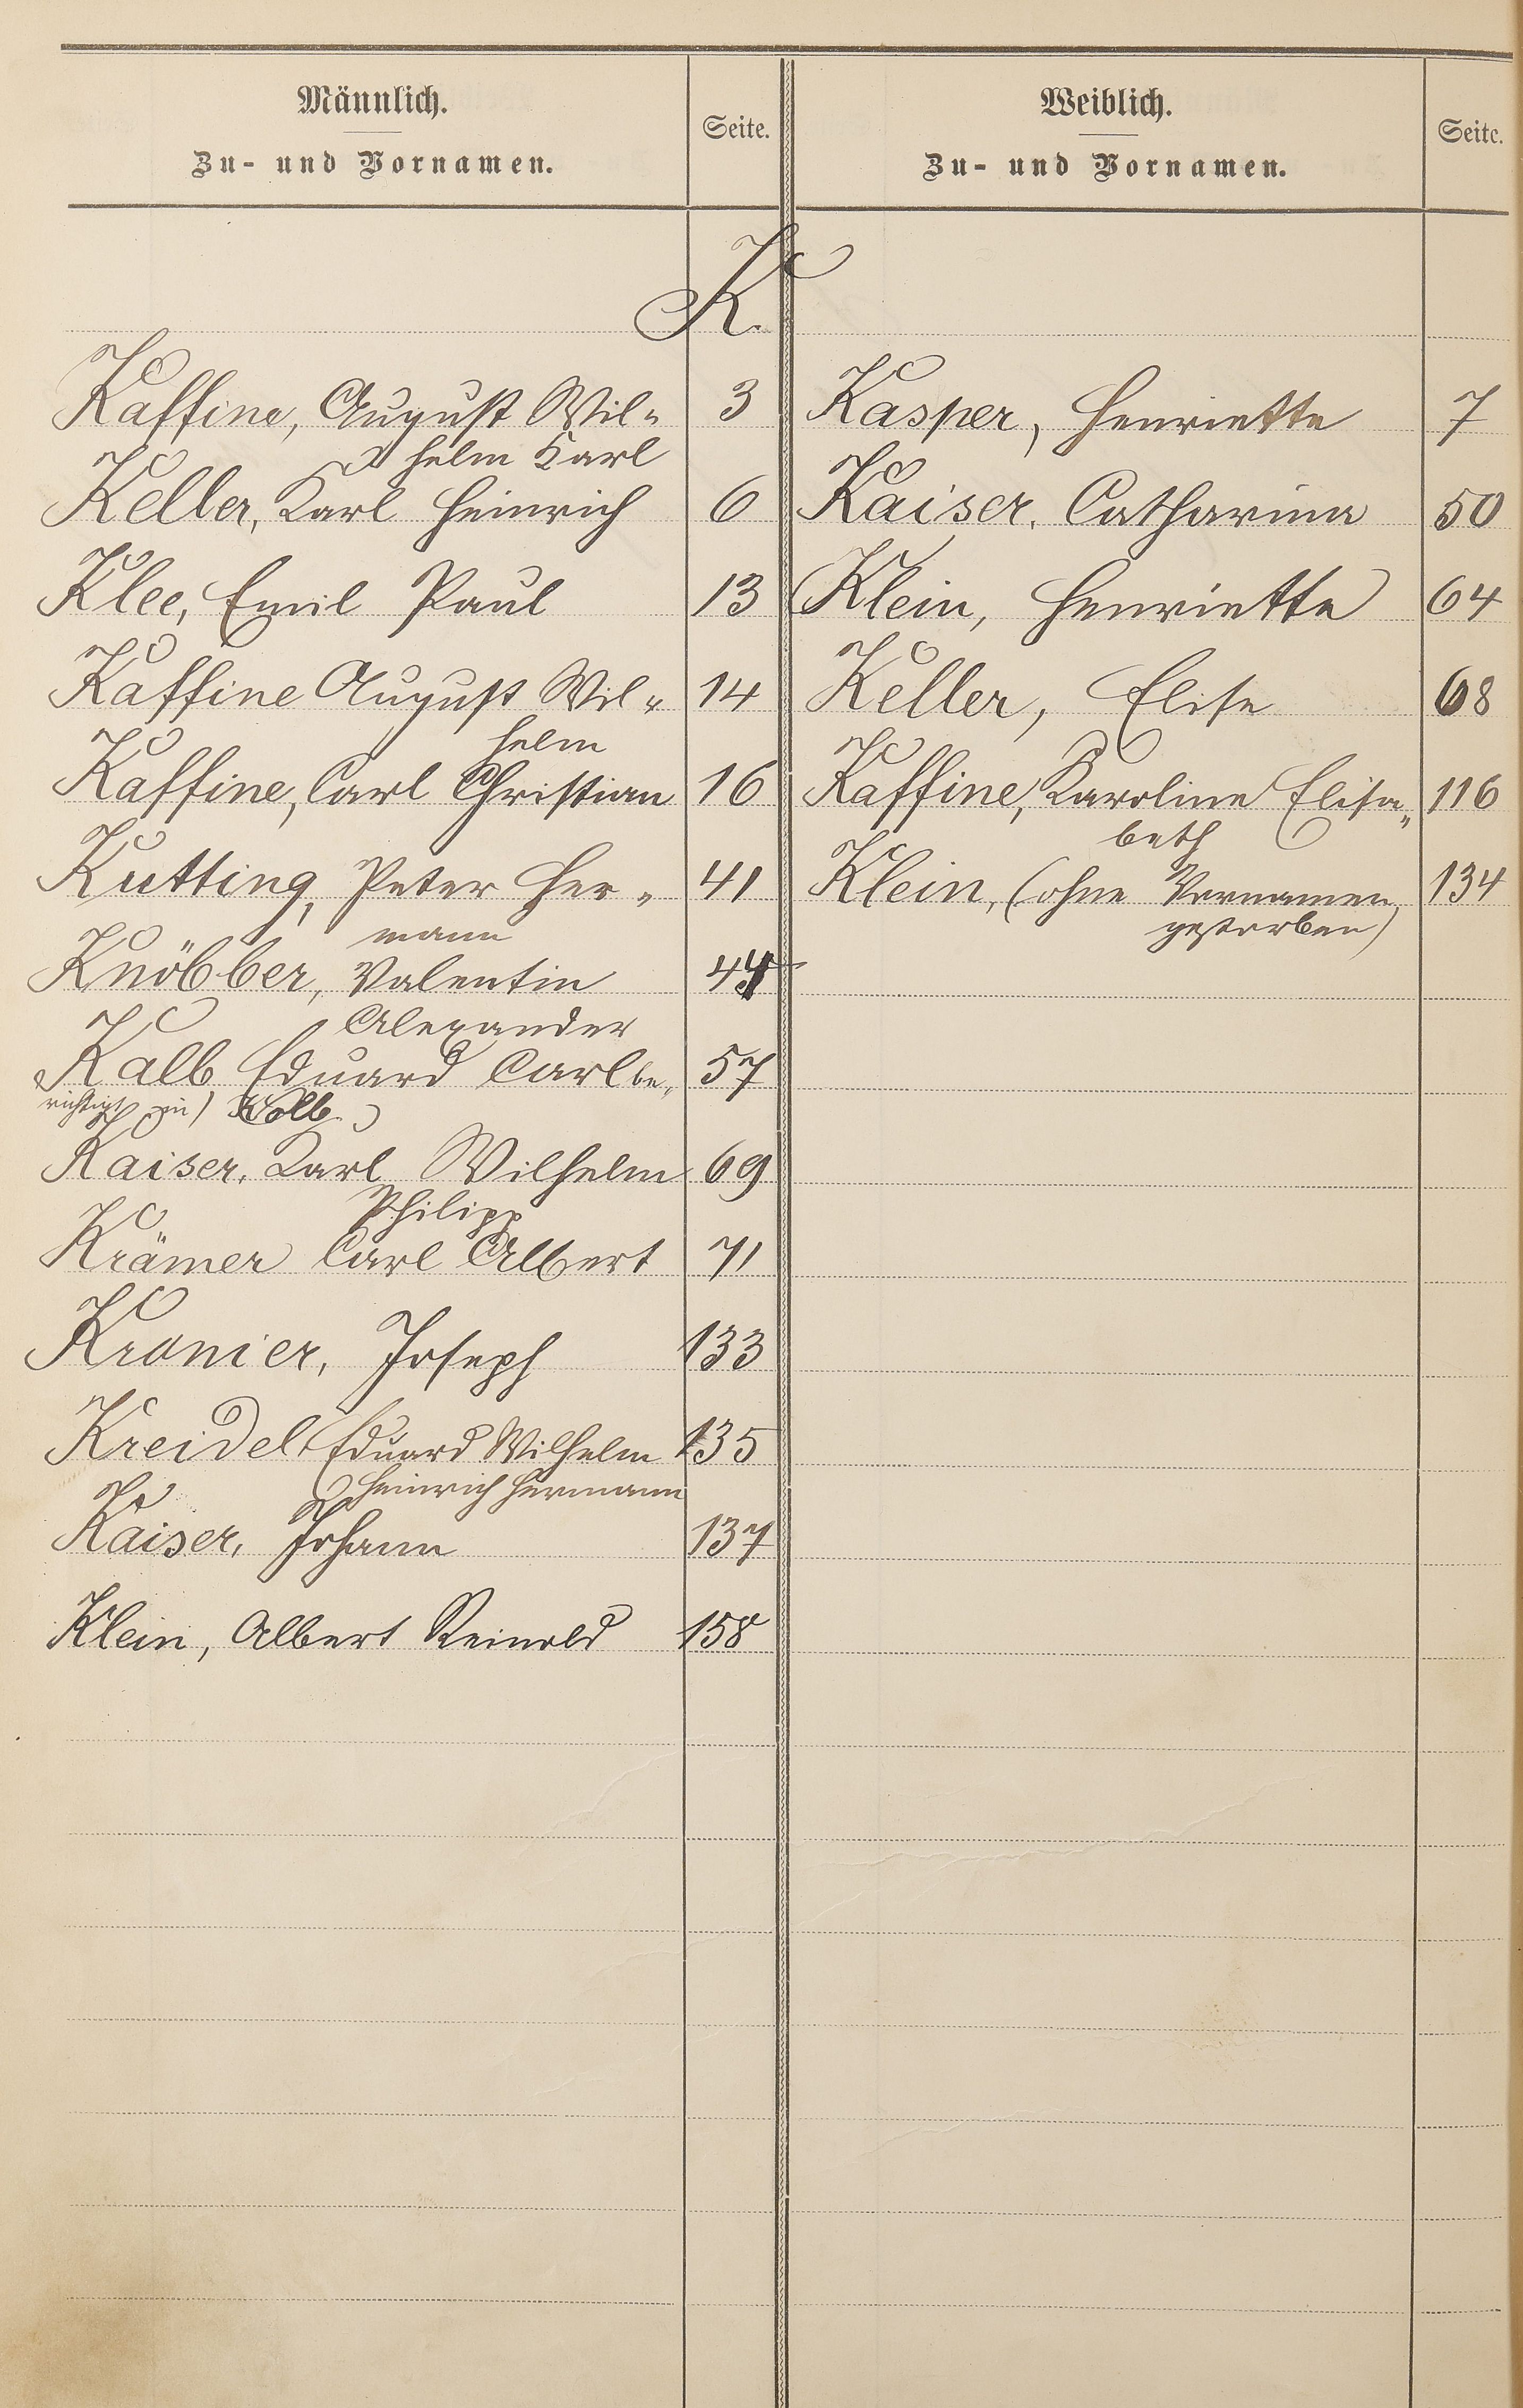 Männlich.
Zu- und Vornamen.
Seite.
Weiblich.
Zu- und Vornamen.
Seite.
K.
Kaffine, August Wil- 3
helm Karl
Keller, Karl Heinrich 6
Klee, Emil Paul 13
Kaffine August Wil- 14
helm
Kaffine, Carl Christian 16
Kutting, Peter Her- 41
mann
Knöbber, Valentin 44
Alexander
Kalb Eduard Carl be- 57
richtigt in) Kolb
Kaiser, Karl Wilhelm 69
Philipp
Krämer Carl Albert 71
Kronier, Joseph 133
Kreidel, Eduard Wilhelm 135
Heinrich Hermann
Kaiser, Johann 137
Klein, Albert Reinold 158
Kasper, Henriette 7
Kaiser, Catharina 50
Klein, Henriette 64
Keller, Elise 68
Kaffine, Karoline Elisa- 116
beth
Klein, (ohne Vornamen 134
gestorben)